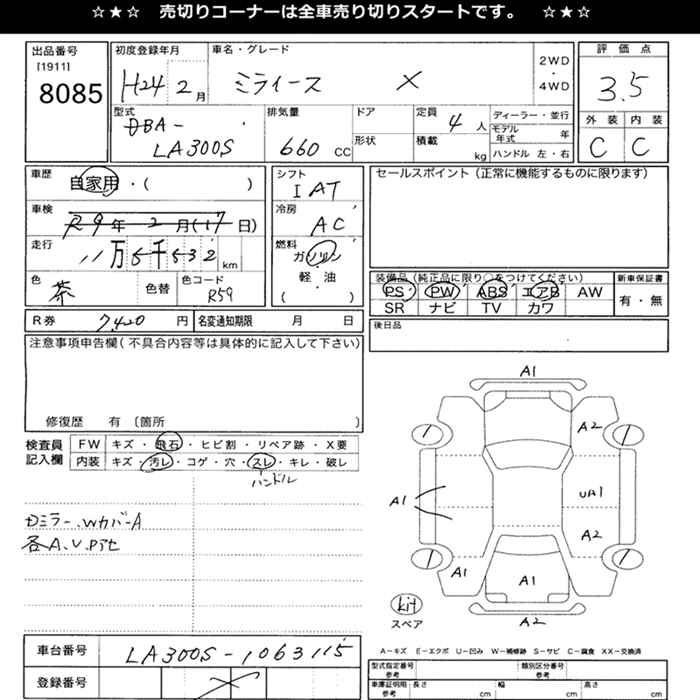 ☆★☆ 売切りコーナーは全車売り切りスタートです。 ☆★☆
出品番号 初度登録年月 車名・グレード 評価点
[1911] 2WD
8085 H24 2月 ミライース X ・ 3.5
4WD
型式 排気量 ドア 定員 ディーラー・並行 外装 内装
DBA- 4人 モデル年式 年
LA300S 660 CC 形状 積載 kg ハンドル 左・右 C C
車歴 シフト セールスポイント(正常に機能するものに限ります)
自家用・( ) IAT
車検 冷房
R9年2月(17日) AC
走行 燃料
11万5千532km ガソリン
色 色コード 軽・油 装備品(純正品に限り○をつけてください) 新車保証書
茶 色替 R59 ( ) PS PW ABS エアB AW 有・無
SR ナビ TV カワ
R券 7420円 名変通知期限 月 日 後日品
注意事項申告欄(不具合内容等は具体的に記入して下さい)
修復歴 有〔箇所 〕
検査員 FW キズ・飛石・ヒビ割・リペア跡・X要
記入欄 内装 キズ・汚レ・コゲ・穴・スレ・キレ・破レ
ハンドル
Dミラー.Wカバ-A
各A.U.Pアセ
A1
A2
1 1
A1 UA1
A2
1 1
A1 A1
kit
スペア A2
A-キズ E-エクボ U-凹み W-補修跡 S-サビ C-腐食 XX-交換済
車台番号 LA300S-1063115 型式指定番号 参考 類別区分番号 参考
登録番号 車庫証明用 参考 長さ cm 幅 cm 高さ cm